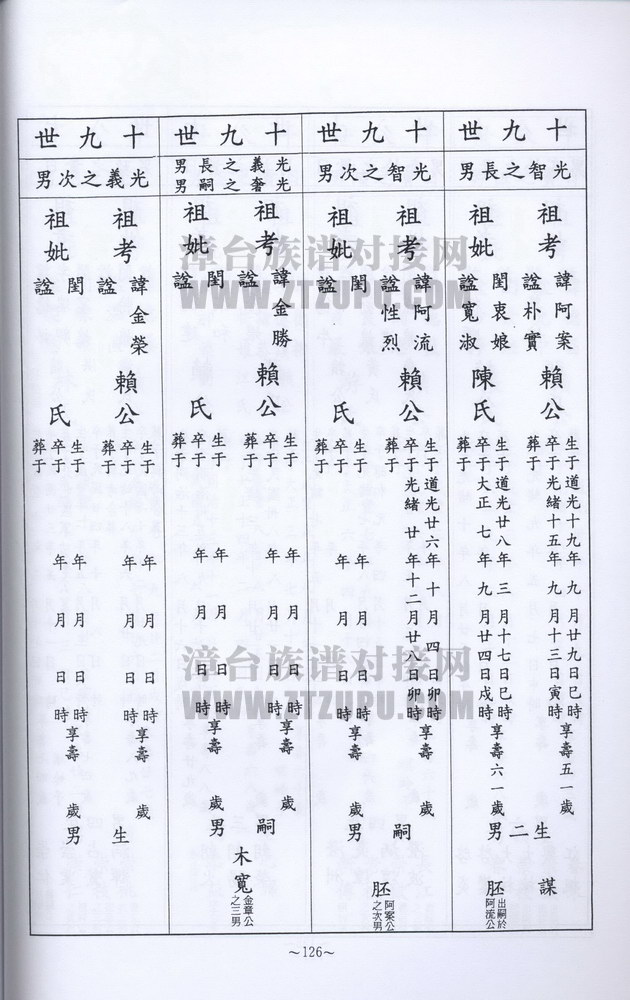 十九世
光智之長男
祖考
諱阿案
諡朴實
賴公
生于道光十九年九月廿九日巳時享壽五一歲
卒于光緒十五年九月十三日寅時
葬于
祖妣
閨衷娘
諡寬淑
陳氏
生于道光廿八年三月十七日巳時享壽六一歲
卒于大正七年九月廿四日戌時
葬于
生二男
謀
胚出嗣於阿流公
十九世
光智之次男
祖考
諱阿流
諡性烈
賴公
生于道光廿六年十月四日卯時享壽歲
卒于光緒廿年十二月廿八日卯時
葬于
祖妣
閨
諡
氏
生于年月日時享壽歲
卒于年月日時
葬于
嗣男
胚阿案公之次男
十九世
光義之長男
光奢之嗣男
祖考
諱金勝
諡
賴公
生于年月日時享壽歲
卒于年月日時
葬于
祖妣
閨
諡
氏
生于年月日時享壽歲
卒于年月日時
葬于
嗣男
木寬金章公之三男
十九世
光義之次男
祖考
諱金榮
諡
賴公
生于年月日時享壽歲
卒于年月日時
葬于
祖妣
閨
諡
氏
生于年月日時享壽歲
卒于年月日時
葬于
生男
~126~
漳台族谱对接网
WWW.ZTZUPU.COM
漳台族谱对接网
WWW.ZTZUPU.COM